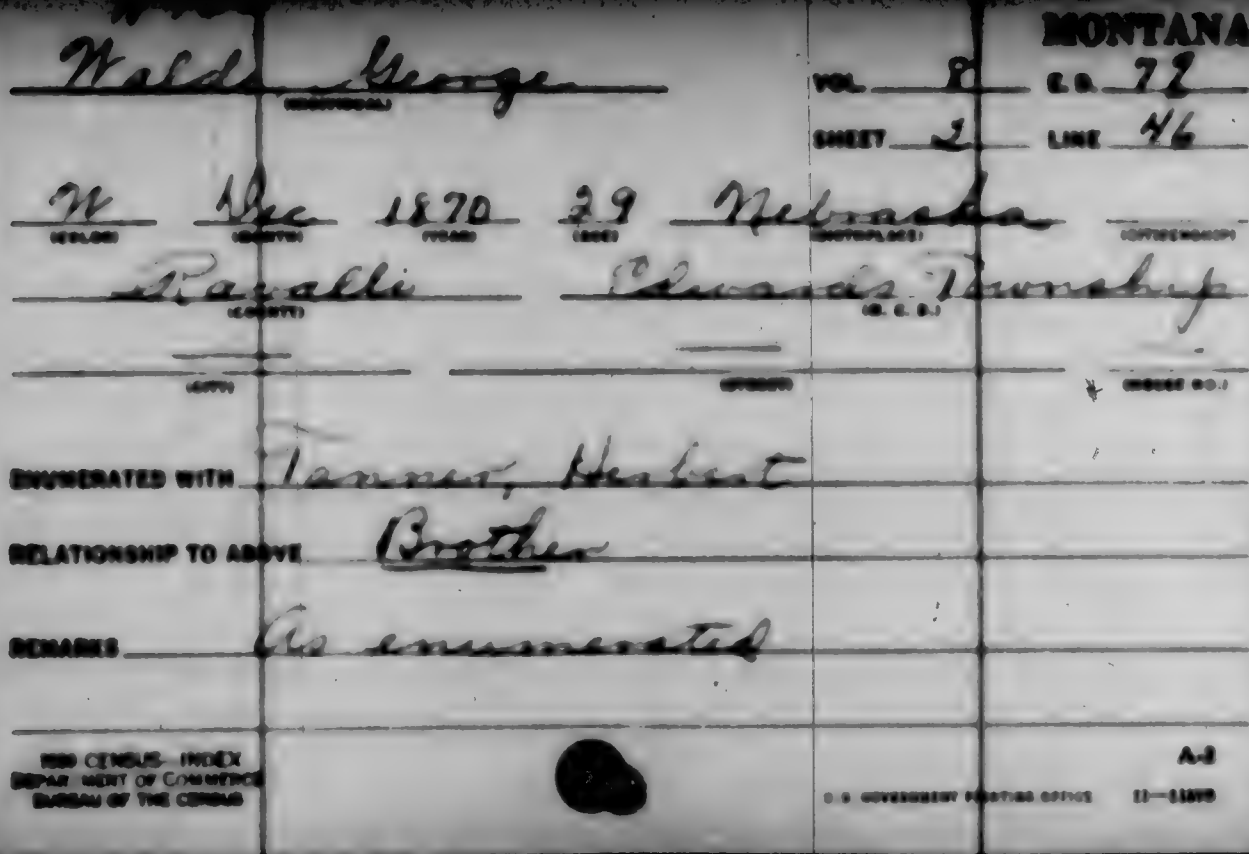 MONTANA
George
(INDIVIDUAL)
VOL. 8 E. D. 72
SHEET 2 LINE 46
W Dec 1870 29 Nebraska
(COLOR) (MONTH) (YEAR) (AGE) (BIRTHPLACE) (CITIZENSHIP)
Ravalli Edwards Township
(COUNTY) (M. C. D.)
(CITY) (STREET) (HOUSE NO.)
ENUMERATED WITH Tanner, Herbert
RELATIONSHIP TO ABOVE Brother
REMARKS As enumerated
CENSUS—INDEX
DEPARTMENT OF COMMERCE
BUREAU OF THE CENSUS
A-2
U.S. GOVERNMENT PRINTING OFFICE